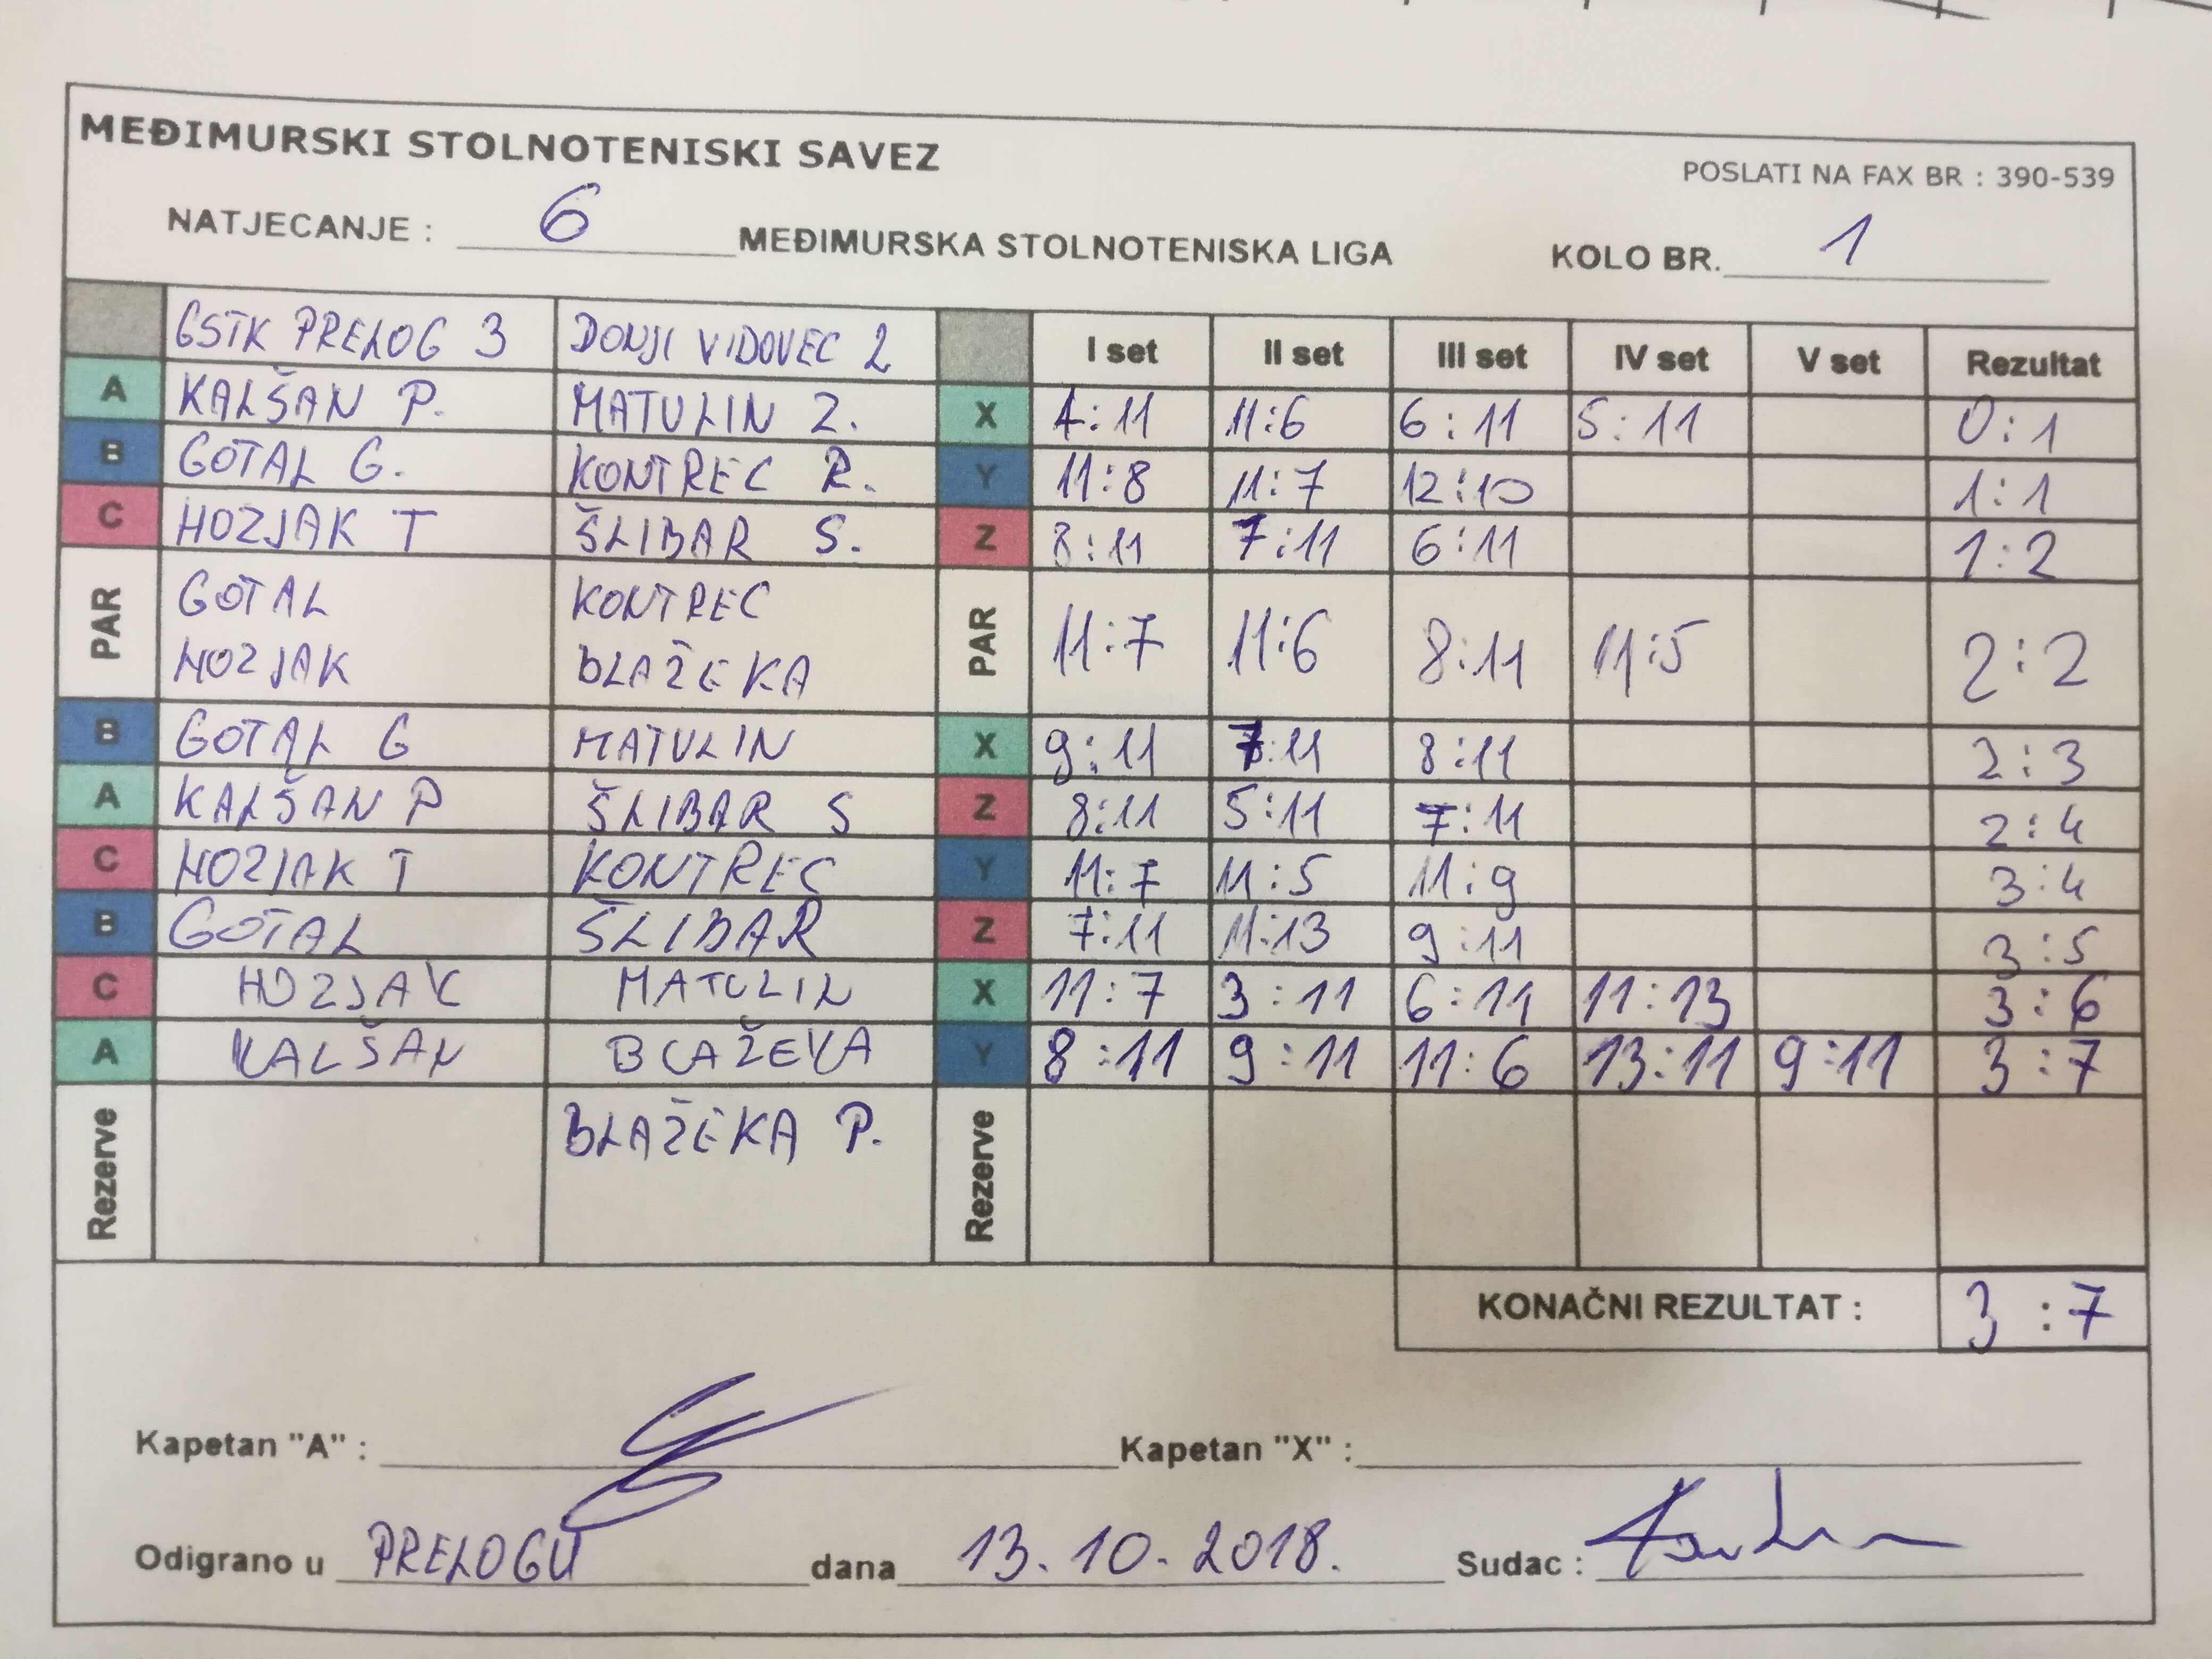 MEĐIMURSKI STOLNOTENISKI SAVEZ
POSLATI NA FAX BR : 390-539
NATJECANJE : 6 MEĐIMURSKA STOLNOTENISKA LIGA KOLO BR. 1
GSTK PRELOG 3 DONJI VIDOVEC 2 I set II set III set IV set V set Rezultat
A KALŠAN P. MATULIN Z. X 4:11 11:6 6:11 5:11 0:1
B GOTAL G. KONTREC R. Y 11:8 11:7 12:10 1:1
C HOZJAK T ŠLIBAR S. Z 8:11 7:11 6:11 1:2
PAR GOTAL KONTREC PAR 11:7 11:6 8:11 11:5 2:2
HOZJAK BLAŽEKA
B GOTAL G MATULIN X 9:11 7:11 8:11 2:3
A KALŠAN P ŠLIBAR S Z 8:11 5:11 7:11 2:4
C HOZJAK T KONTREC Y 11:7 11:5 11:9 3:4
B GOTAL ŠLIBAR Z 7:11 11:13 9:11 3:5
C HOZJAK MATULIN X 11:7 3:11 6:11 11:13 3:6
A KALŠAN BLAŽEKA Y 8:11 9:11 11:6 13:11 9:11 3:7
Rezerve BLAŽEKA P. Rezerve
KONAČNI REZULTAT : 3:7
Kapetan "A" : Kapetan "X" :
Odigrano u PRELOGU dana 13.10.2018. Sudac :